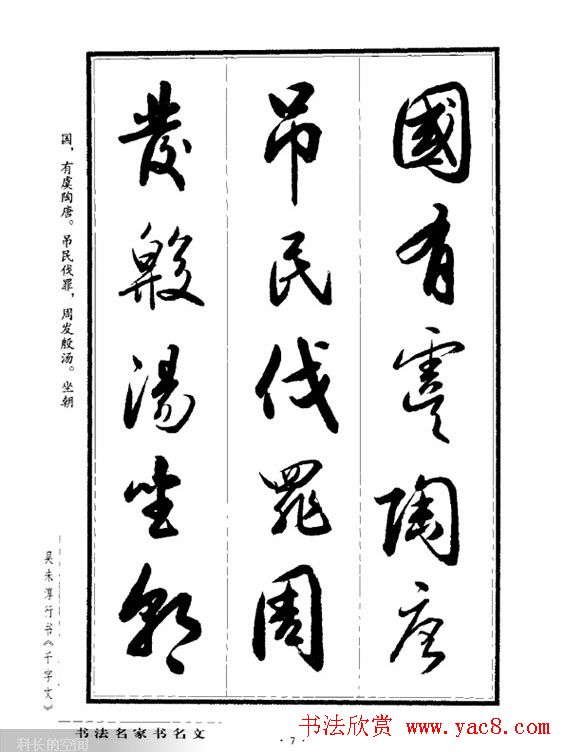 國有虞陶唐
吊民伐罪周
發殷湯坐朝
国，有虞陶唐。吊民伐罪，周发殷汤。坐朝
吴未淳行书《千字文》
书法名家书名文
·7·
书法欣赏 www.yac8.com
科长的空间